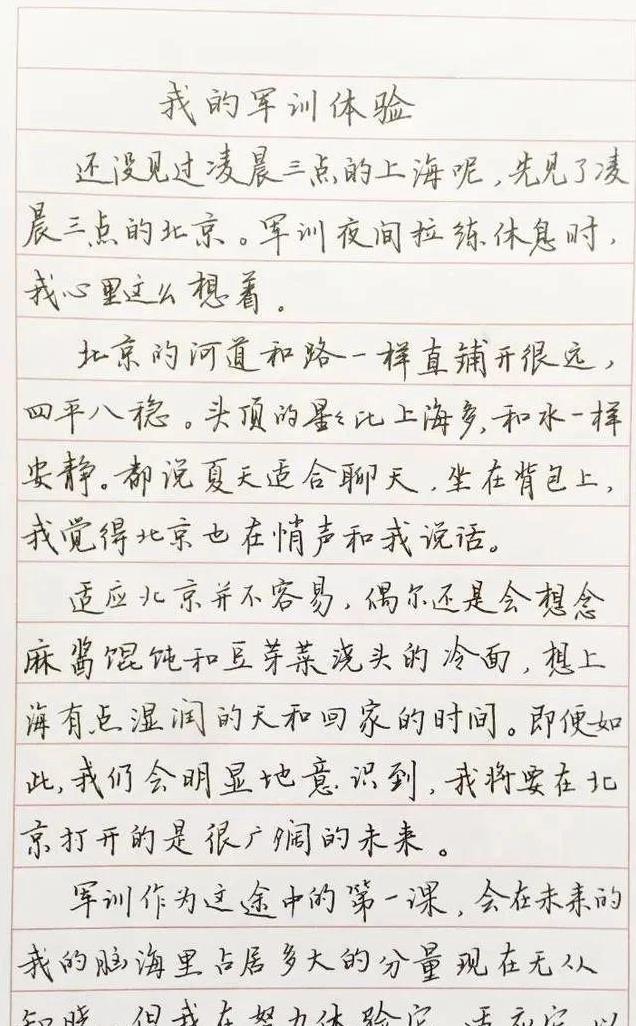 我的军训体验
还没见过凌晨三点的上海呢,先见了凌
晨三点的北京。军训夜间拉练休息时,
我心里这么想着。
北京的河道和路一样直铺开很远,
四平八稳。头顶的星星比上海多,和水一样
安静。都说夏天适合聊天,坐在背包上,
我觉得北京也在悄声和我说话。
适应北京并不容易,偶尔还是会想念
麻酱馄饨和豆芽菜浇头的冷面,想上
海有点湿润的天和回家的时间。即便如
此,我们会明显地意识到,我将要在北
京打开的是很广阔的未来。
军训作为这途中的第一课,会在未来的
我的脑海里占居多大的分量现在无从
知晓,但我在努力体验它,适应它,以